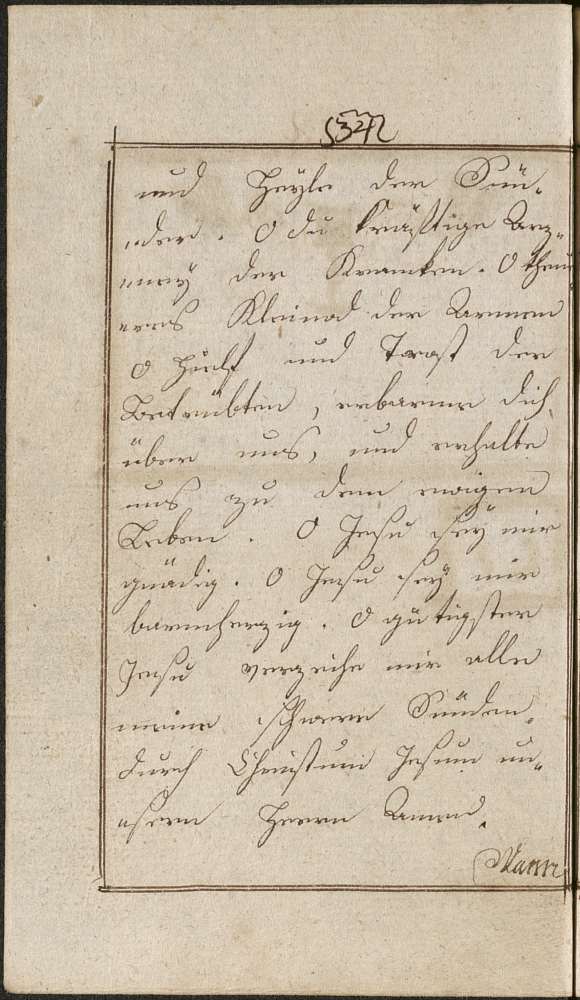 34
und Heyle der Sün-
der. O du kräfftige Arz-
ney der Krancken. O theu
eres Kleinod der Armen
O Hülf und Trost der
Betrübten, erbarme dich
über uns, und erhalte
uns zu dem ewigen
Leben. O Jesu sey mir
gnädig. O Jesu sey mir
barmherzig. O gütigster
Jesu verzeihe mir alle
meine schwere Sünden
durch Christum Jesum un-
sern Herrn Amen.
Mann